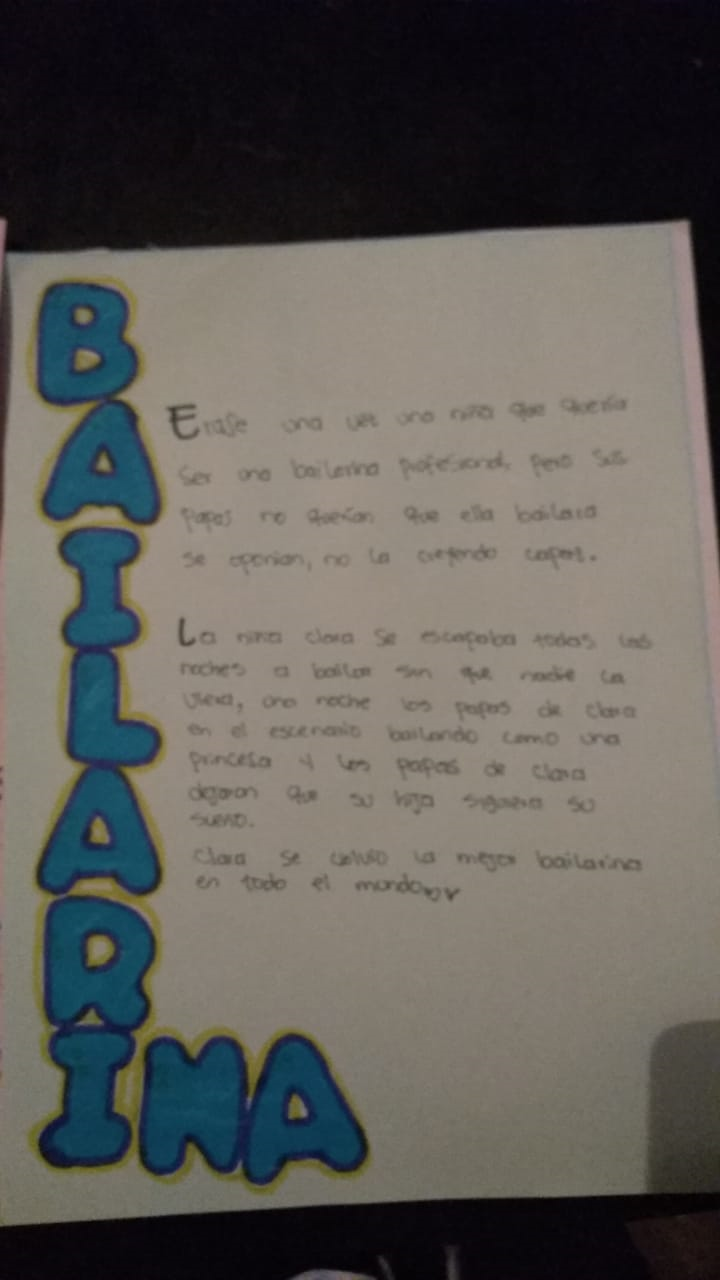 BAILARINA
Erase una vez una niña que quería
ser una bailarina profesional, pero sus
papas no querian que ella bailara
se oponian, no la creyendo capas.
La niña clara se escapaba todas las
noches a bailar sin que nadie la
viera, una noche los papas de clara
en el escenario bailando como una
princesa y los papas de clara
dejaron que su hija siguiera su
sueño.
Clara se volvio la mejor bailarina
en todo el mundo♡♡